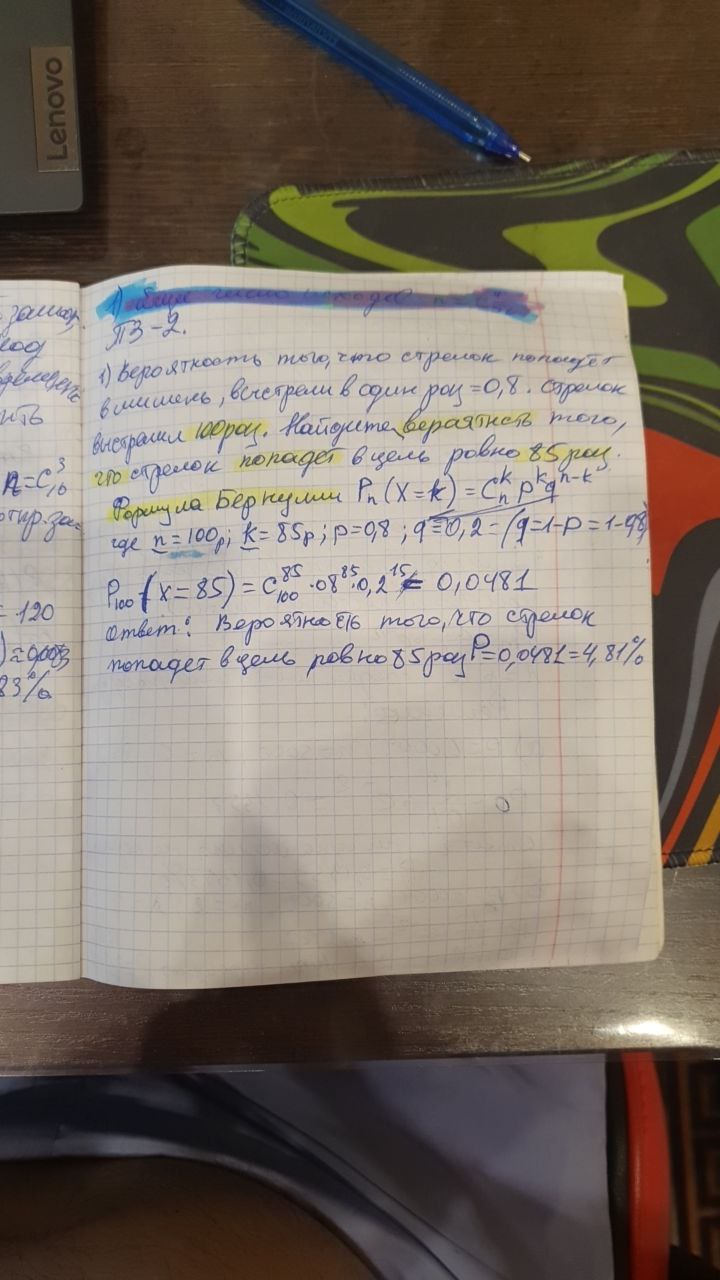 Lenovo
1) число исходов
ПЗ-2.
1) Вероятность того, что стрелок попадёт
в мишень, выстрелив один раз = 0,8. Стрелок
выстрелил 100 раз. Найдите вероятность того,
что стрелок попадёт в цель ровно 85 раз.
Формула Бернулли Pₙ(X=k) = Cₙᵏ pᵏ qⁿ⁻ᵏ
где n = 100р; k = 85р; p=0,8; q=0,2 = (q=1-p = 1-0,8)
P₁₀₀(X=85) = C₁₀₀⁸⁵ · 08⁸⁵ · 0,2¹⁵ = 0,0481
Ответ: Вероятность того, что стрелок
попадет в цель ровно 85 раз P=0,0481=4,81%
n=C₁₀³
= 120
83%